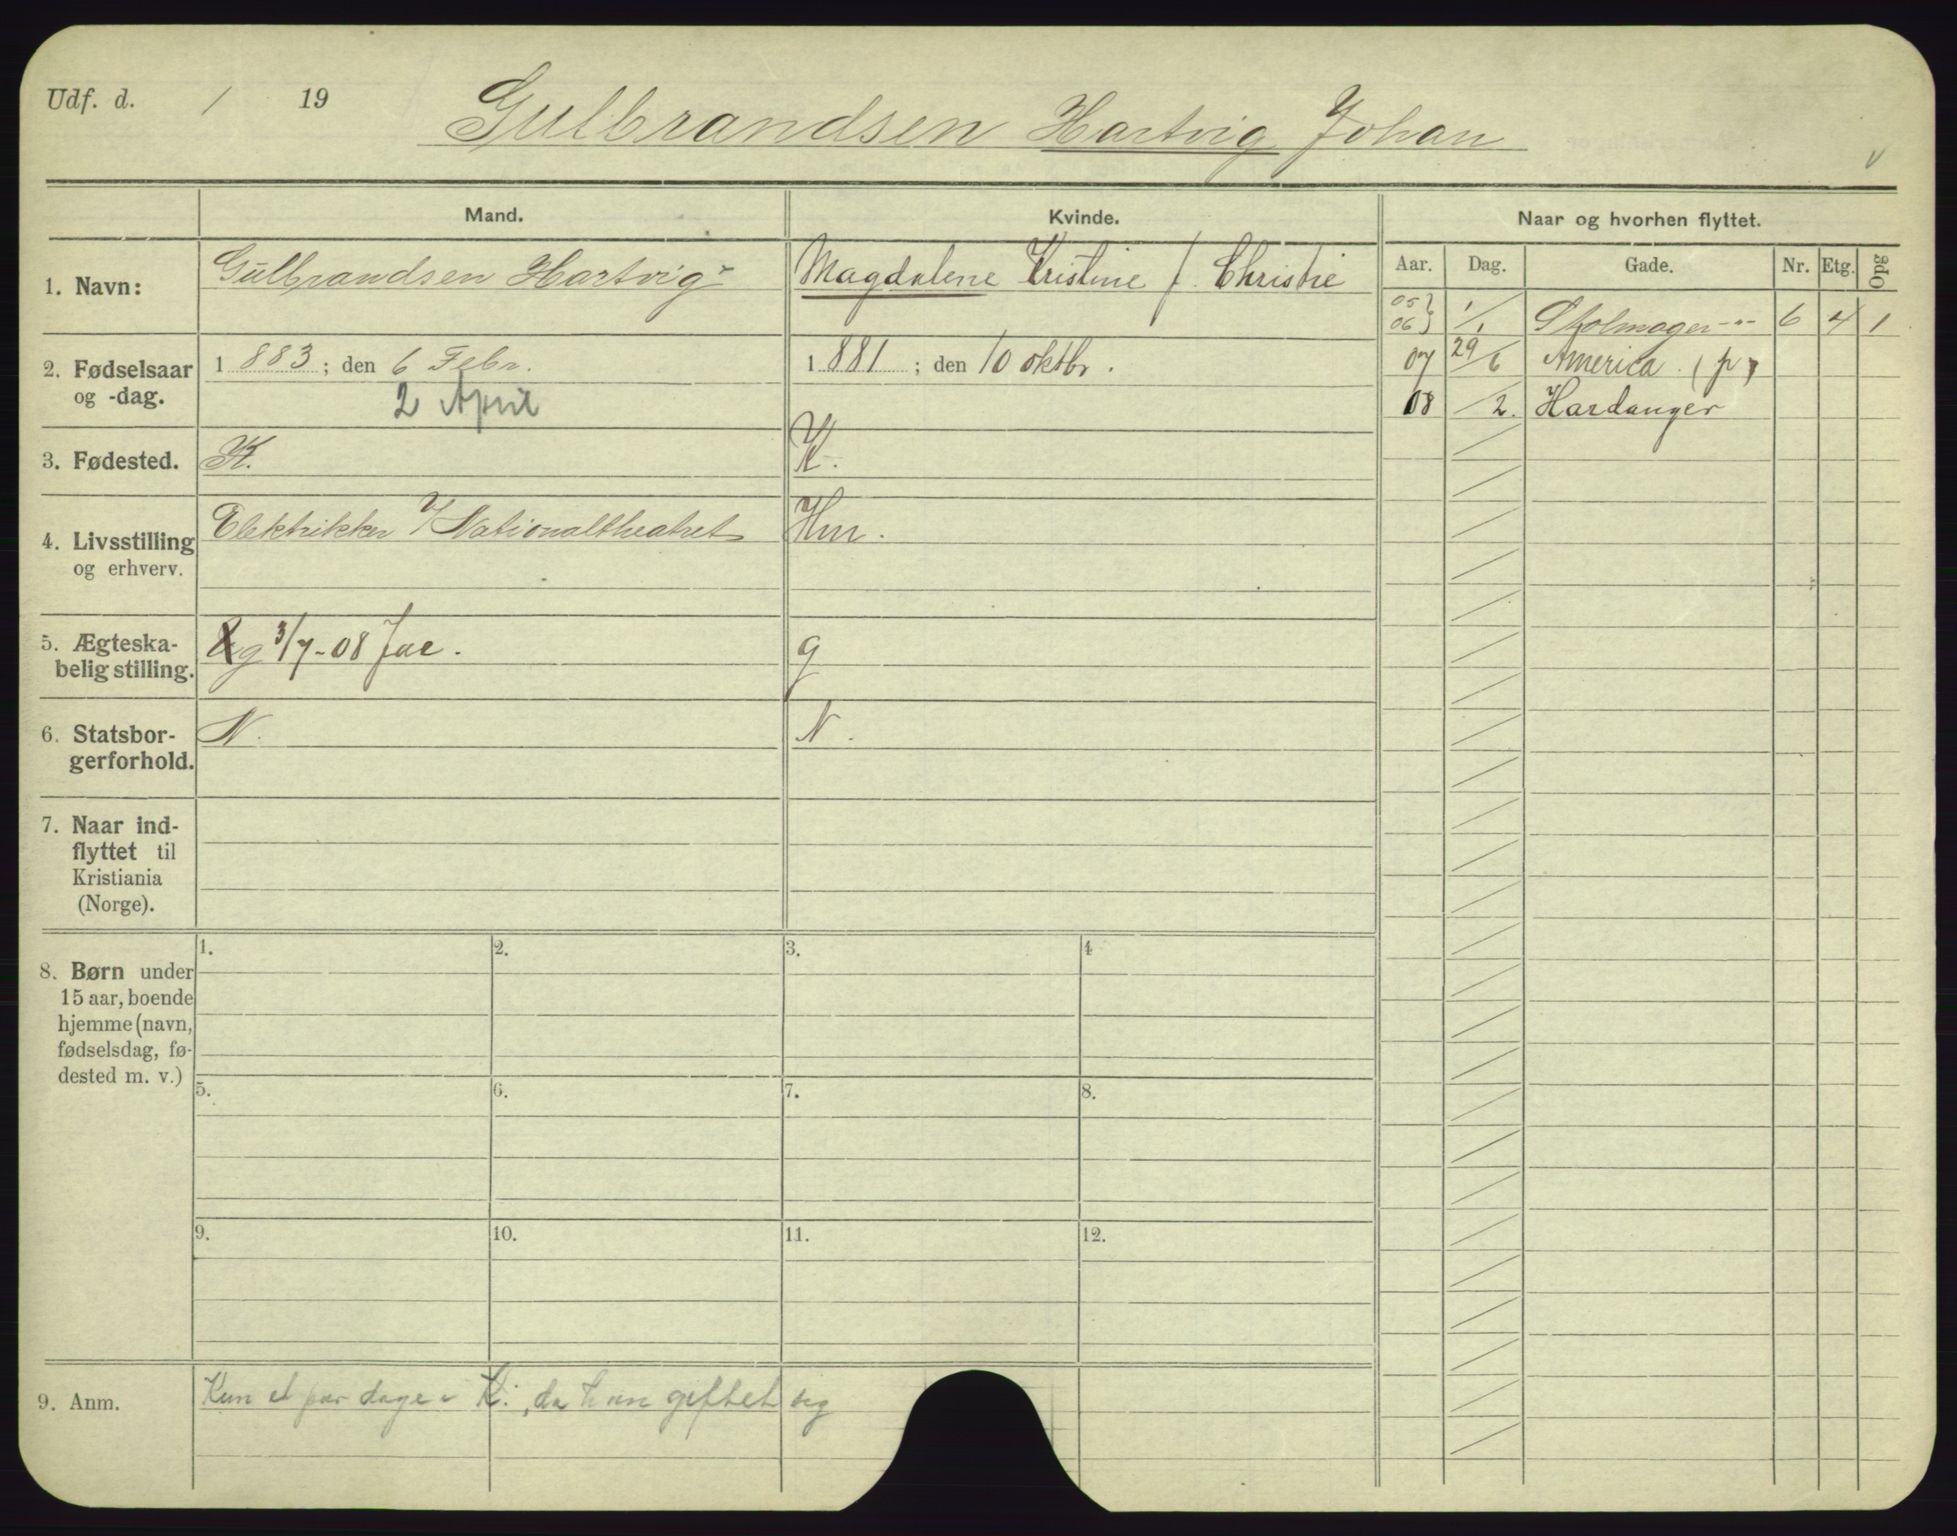 Udf. d. / 19
Gulbrandsen Hartvig Johan
Mand. Kvinde. Naar og hvorhen flyttet.
Aar. Dag. Gade. Nr. Etg. Opg
1. Navn: Gulbrandsen Hartvig Magdalene Kristine f. Christie
05} 06} 1/1 Skolmager-"- 6 4 1
07 29/6 America (p)
08 /2. Hardanger
2. Fødselsaar og -dag. 1883; den 6 Febr. 1881; den 10 oktbr.
2 April
3. Fødested. K. K.
4. Livsstilling og erhverv. Elektriker v/ Nationaltheatret Hm.
5. Ægteskabelig stilling. g 3/7-08 Jac. g
6. Statsborgerforhold. N. N.
7. Naar indflyttet til Kristiania (Norge).
8. Børn under 15 aar, boende hjemme (navn, fødselsdag, fødested m. v.)
1. 2. 3. 4
5. 6. 7. 8.
9. 10. 11. 12.
9. Anm. Kun et par dage i K., da han giftet sig